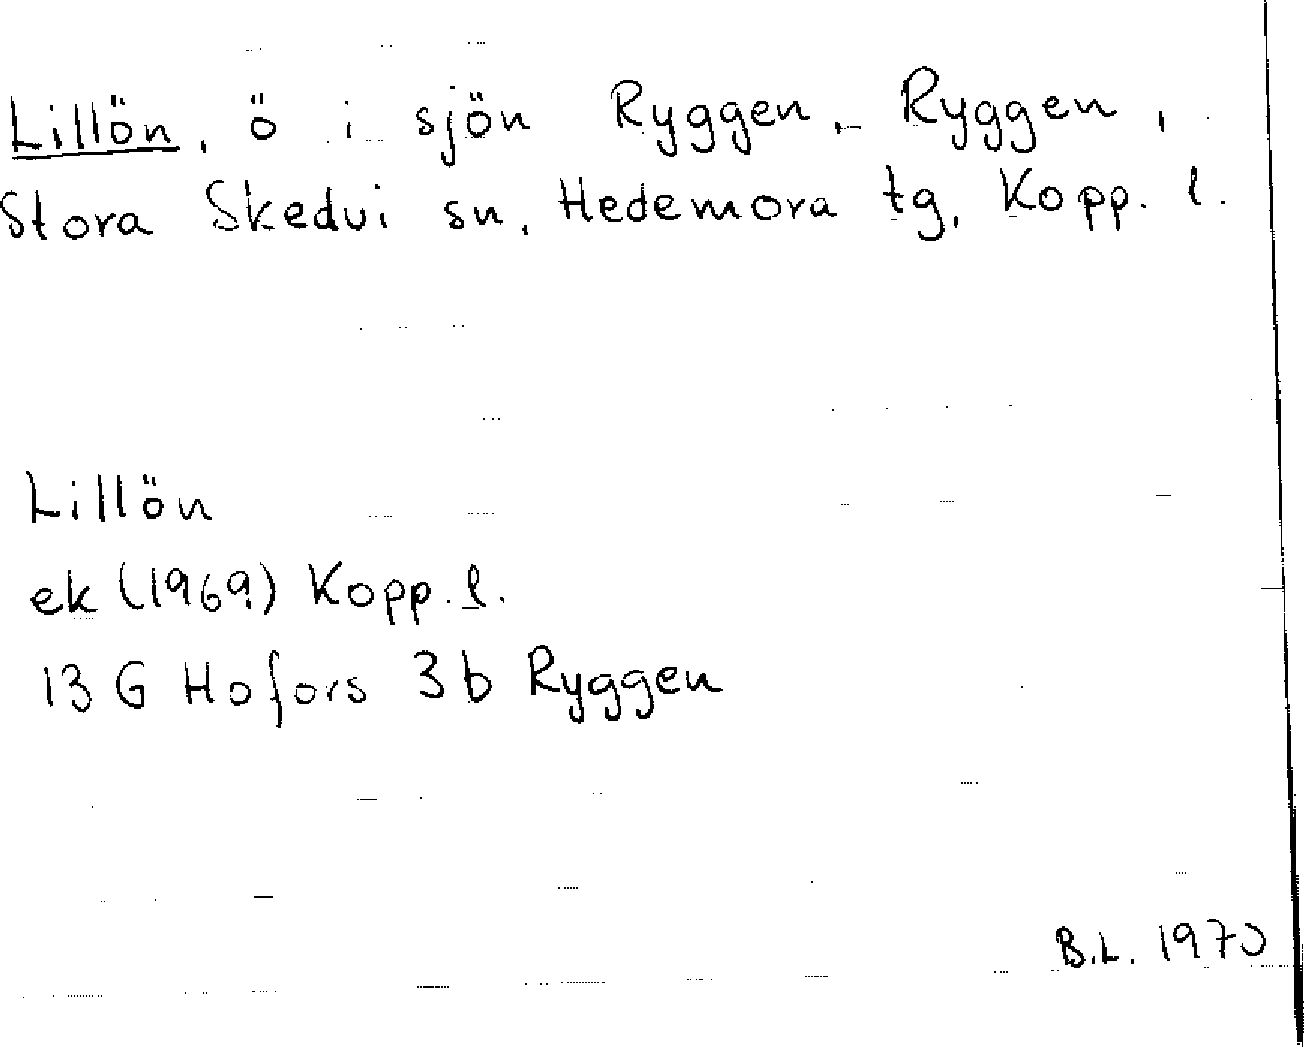 Lillön, ö i sjön Ryggen, Ryggen,
Stora Skedvi sn, Hedemora tg, Kopp. l.
Lillön
ek (1969) Kopp. l.
13 G Hofors 3b Ryggen
B.L. 1970